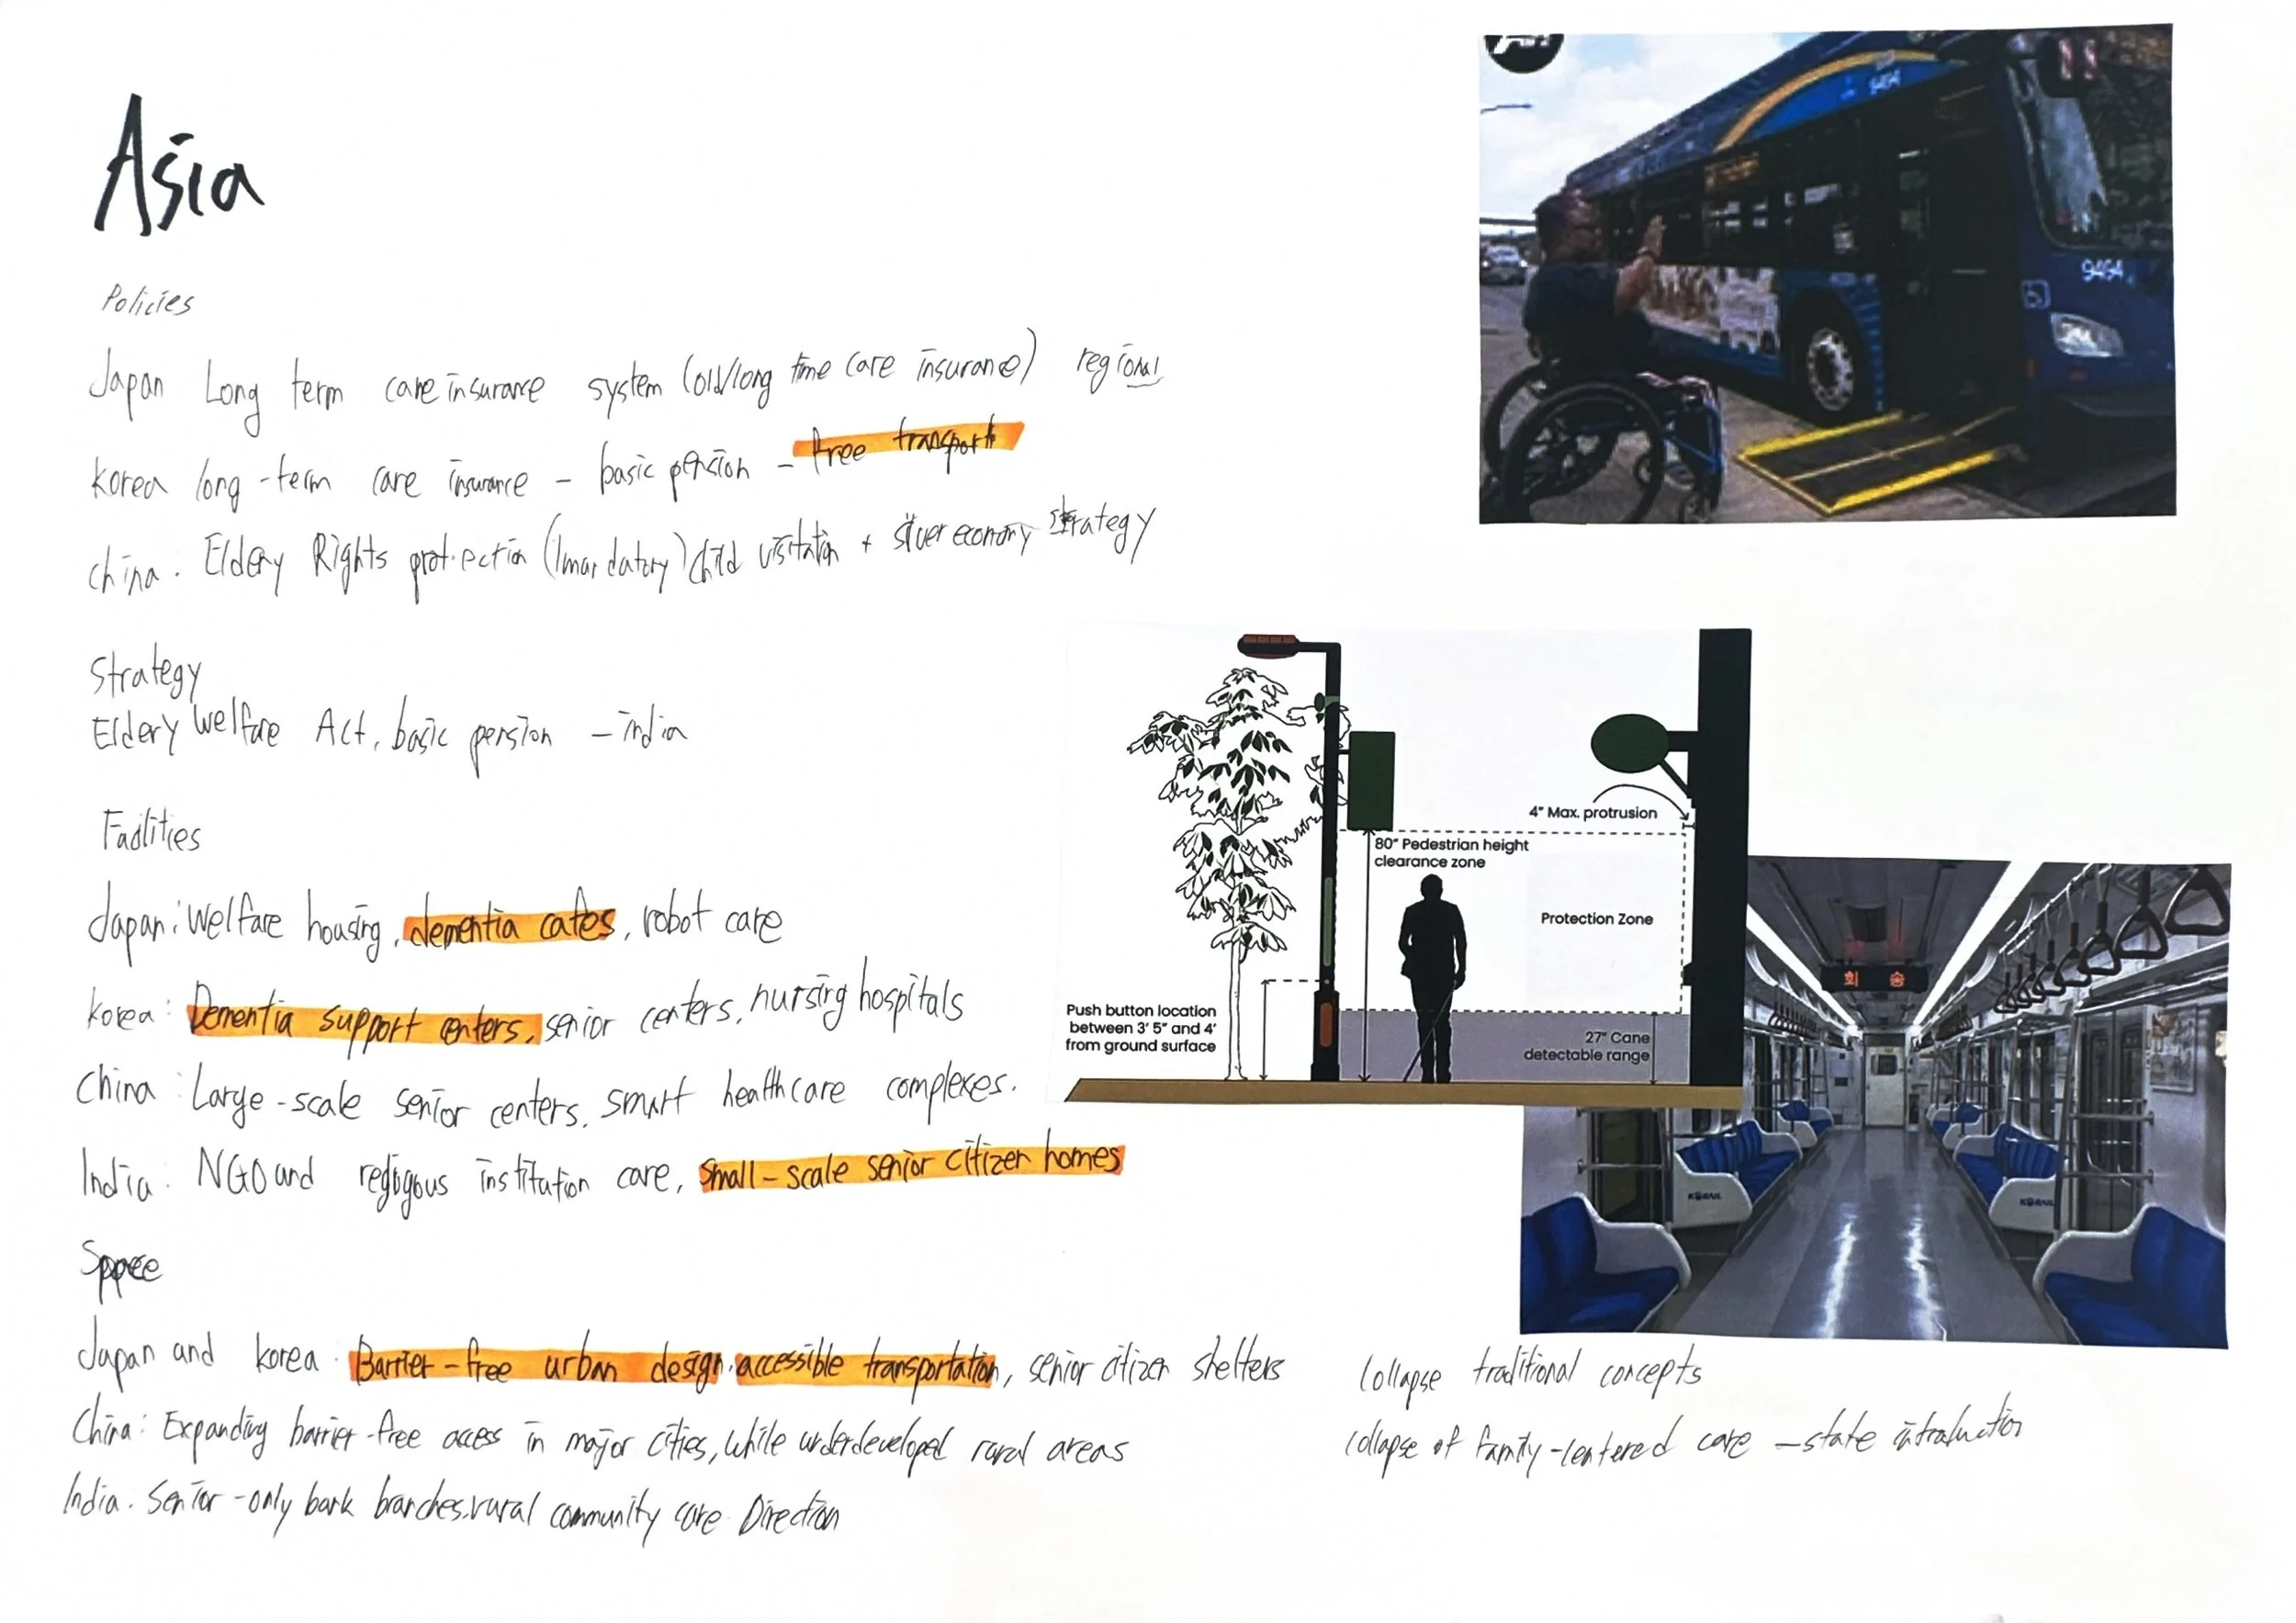 Asia
Policies
Japan Long term care insurance system (old/long time care insurance) regional
Korea long-term care insurance - basic pension - free transport
China. Eldery Rights protection (mandatory) child visitation + silver economy strategy
Strategy
Eldery welfare Act, basic pension - india
Facilities
Japan: welfare housing, dementia cafes, robot care
Korea: Dementia support centers, senior centers, nursing hospitals
China: Large-scale senior centers, smart healthcare complexes.
India: NGO and institution care, small-scale senior citizen homes
Japan and korea: Barrier-free urban design, accessible transportation, senior citizen shelters
China: Expanding barrier-free access in major cities, while underdeveloped rural areas
India. Senior-only bank branches, rural community care Direction
Collapse traditional concepts
collapse of family-centered care - state
9464
9464
4" Max. protrusion
80" Pedestrian height
clearance zone
Protection Zone
Push button location
between 3' 5" and 4'
from ground surface
27" Cane
detectable range
회 송
KORAIL
KORAIL